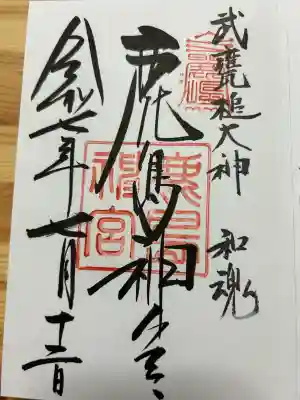 武甕槌大神 和魂
鹿島神宮
鹿島神宮
令和七年十一月十二日